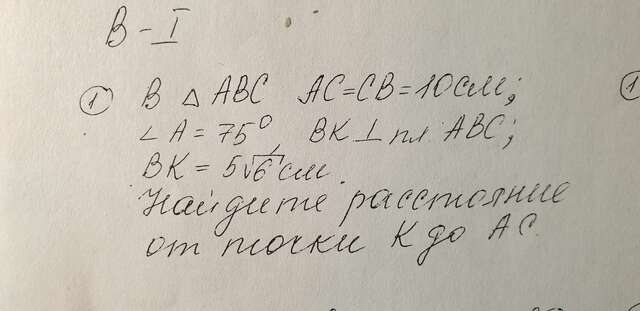 В - I
① В △ ABC AC=CB=10см;
∠A = 75° BK ⊥ пл ABC;
BK = 5√6 см.
Найдите расстояние
от точки K до AC.